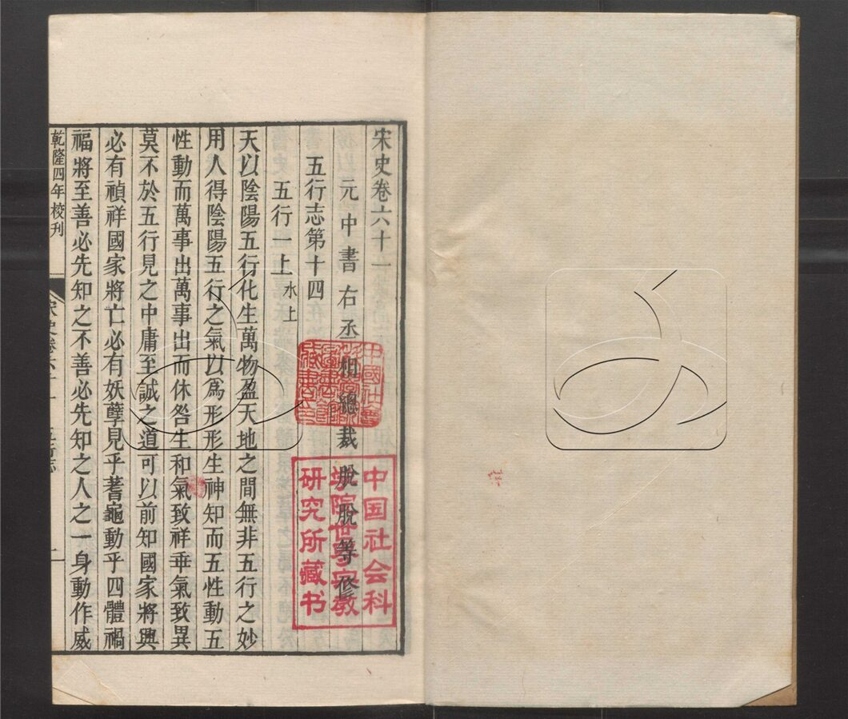 宋史卷六十一
元中書右丞相總裁脫脫等修
五行志第十四
五行一上 水上
天以陰陽五行化生萬物盈天地之間無非五行之妙
用人得陰陽五行之氣以為形形生神知而五性動五
性動而萬事出萬事出而休咎生和氣致祥乖氣致異
莫不於五行見之中庸至誠之道可以前知國家將興
必有禎祥國家將亡必有妖孽見乎蓍龜動乎四體禍
福將至善必先知之不善必先知之人之一身動作威
乾隆四年校刊
宋史卷六十一 五行志 一
中国社会科
学院世界宗教
研究所藏书